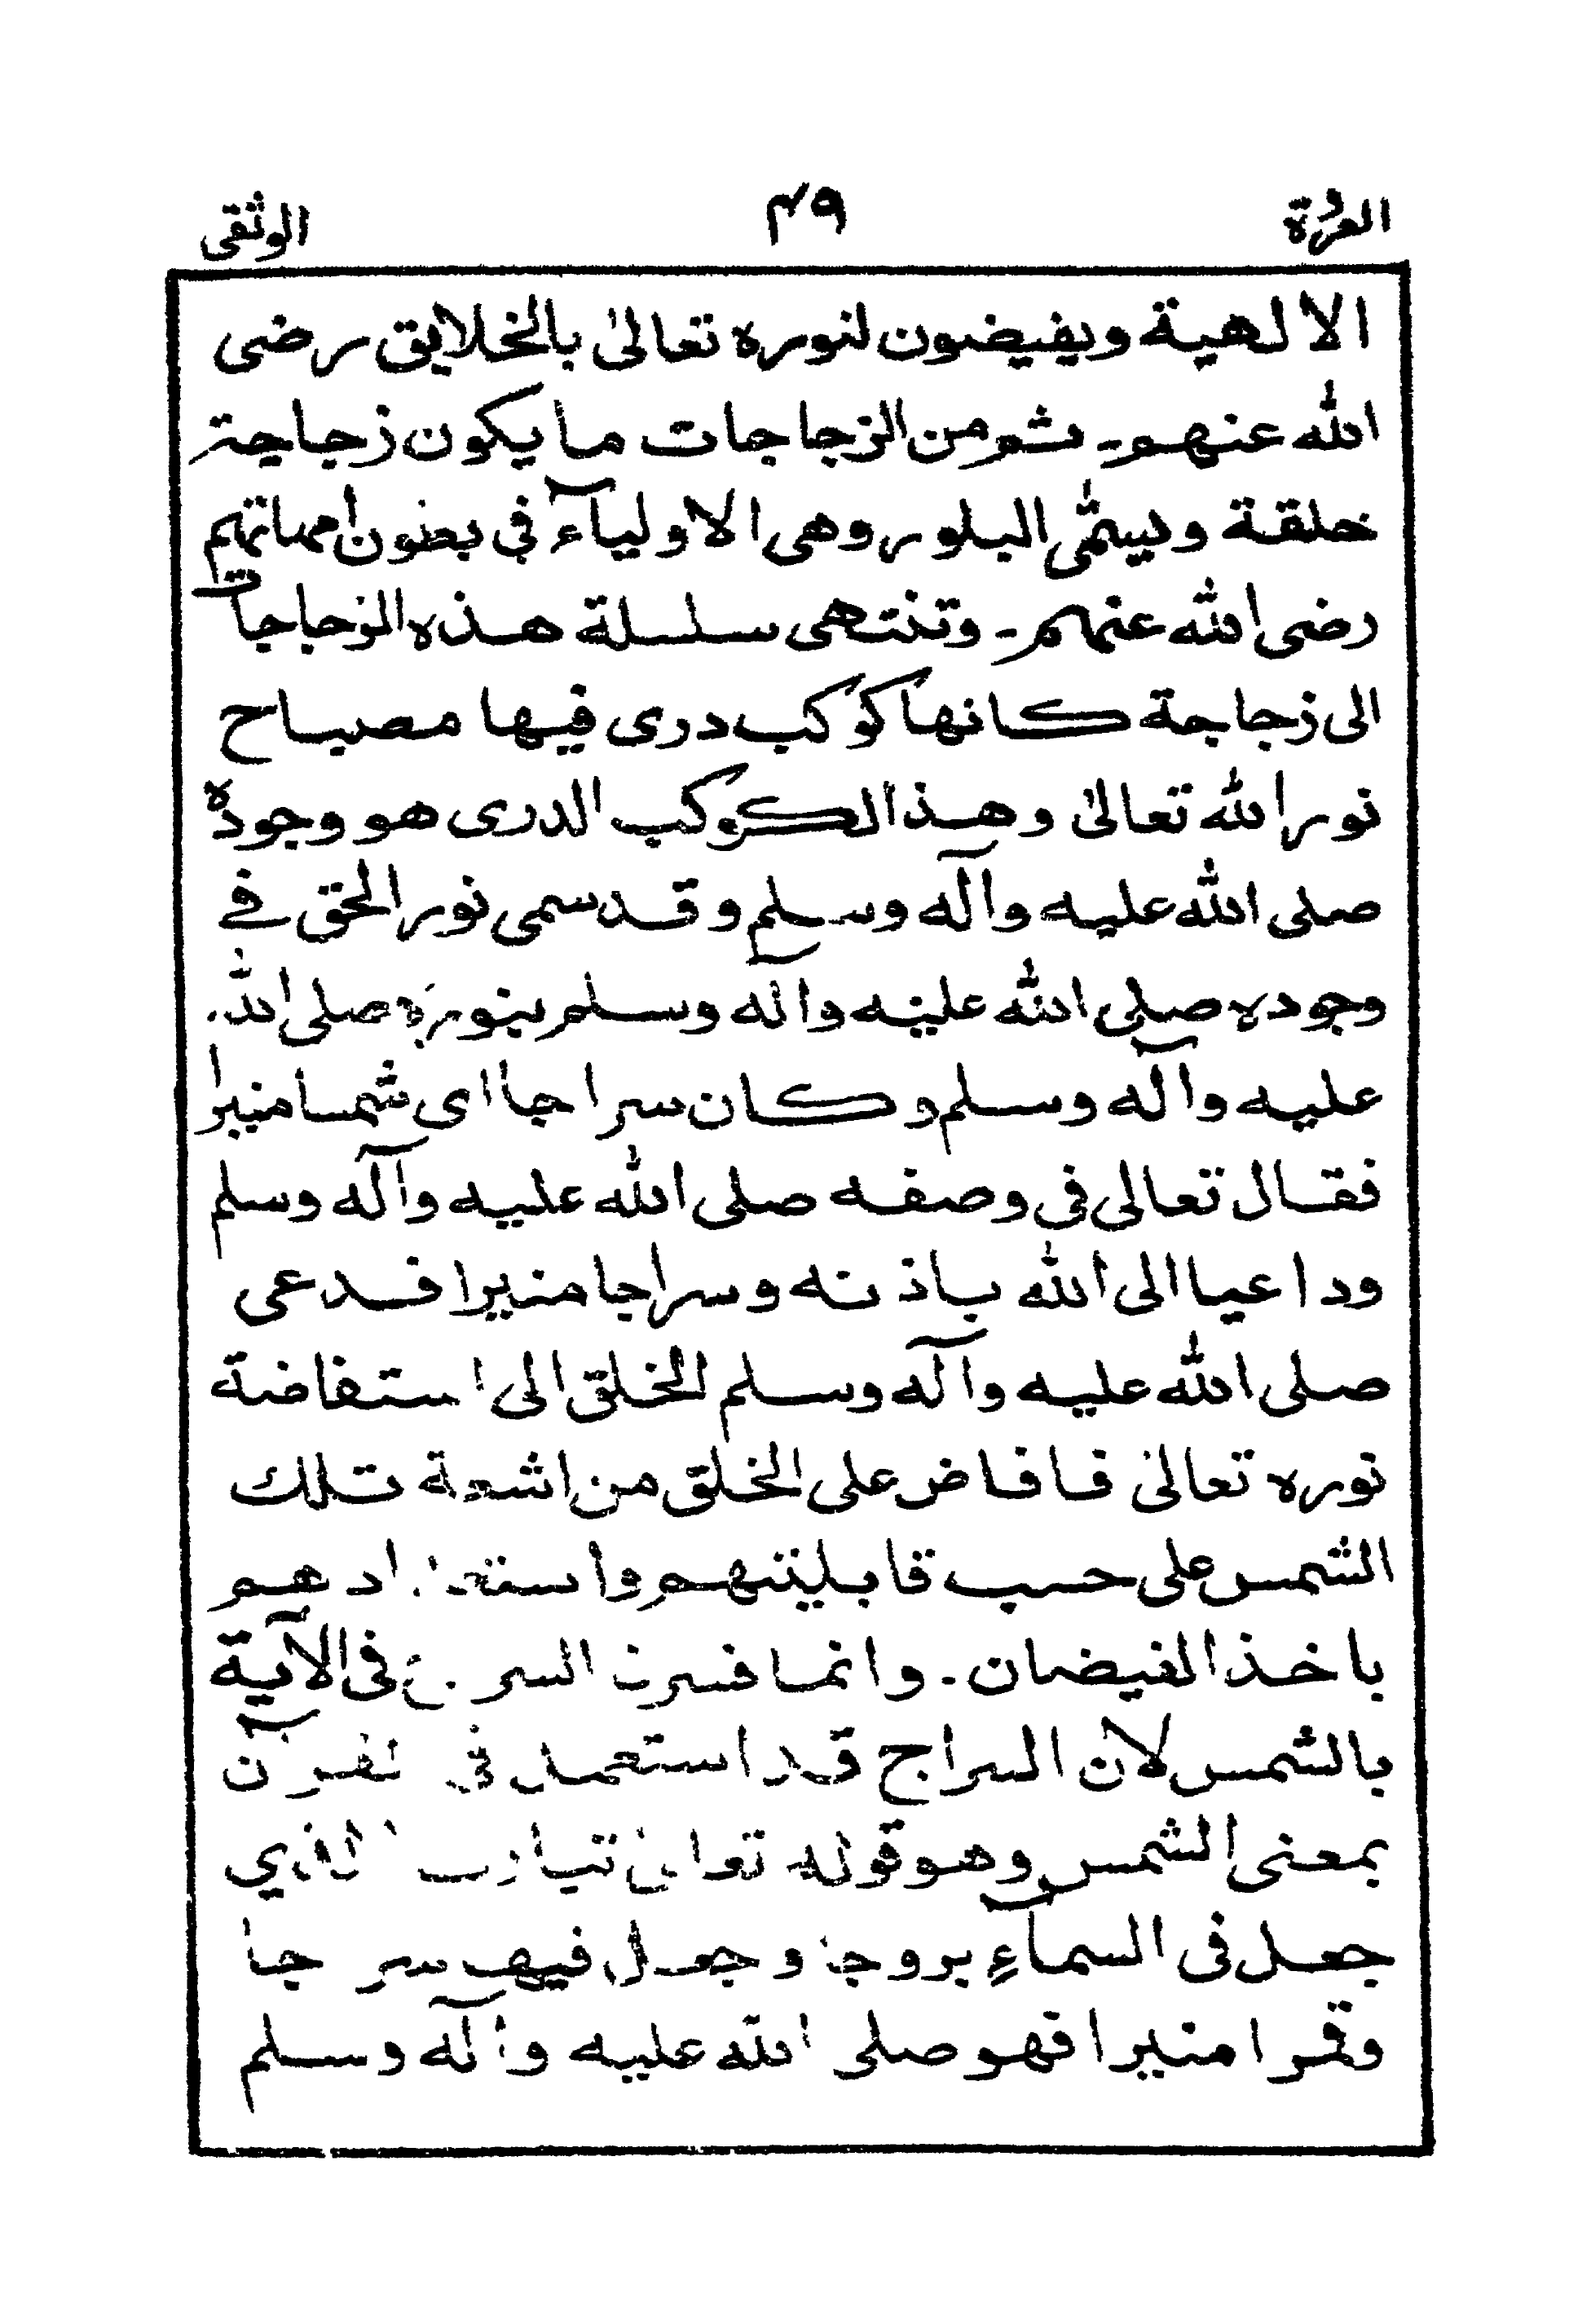 العروة ٤٩ الوثقى
الالهية ويفيضون لنوره تعالىٰ بالخلايق رضى
الله عنهم۔ ثم من الزجاجات ما يكون زجاجيته
خلقة ويسمّى البلور وهى الاوليآء فى بطون أمهاتهم
رضى الله عنهم۔ وتنتهى سلسلة هذه الزجاجات
الى زجاجة كانها كوكب درى فيها مصباح
نور الله تعالىٰ وهذا الكوكب الدرى هو وجوده
صلى الله عليه وآله وسلم وقد سمى نور الحق فے
وجوده صلى الله عليه وآله وسلم بنوره صلى الله
عليه وآله وسلم وكان سراجا اى شمسا منيرا
فقال تعالى فى وصفه صلى الله عليه وآله وسلم
وداعيا الى الله باذنه وسراجا منيرا فدعى
صلى الله عليه وآله وسلم الخلق الى استفاضة
نوره تعالىٰ فافاض على الخلق من اشعة تلك
الشمس على حسب قابليتهم واستعدادهم
باخذ الفيضان۔ وانما فسرت السراج فى الآية
بالشمس لان السراج قد استعمل فى القرآن
بمعنى الشمس وهو قوله تعالىٰ تبارك الذي
جعل فى السمآءِ بروجا وجعل فيها سراجا
وقمرا منيرا فهو صلى الله عليه وآله وسلم